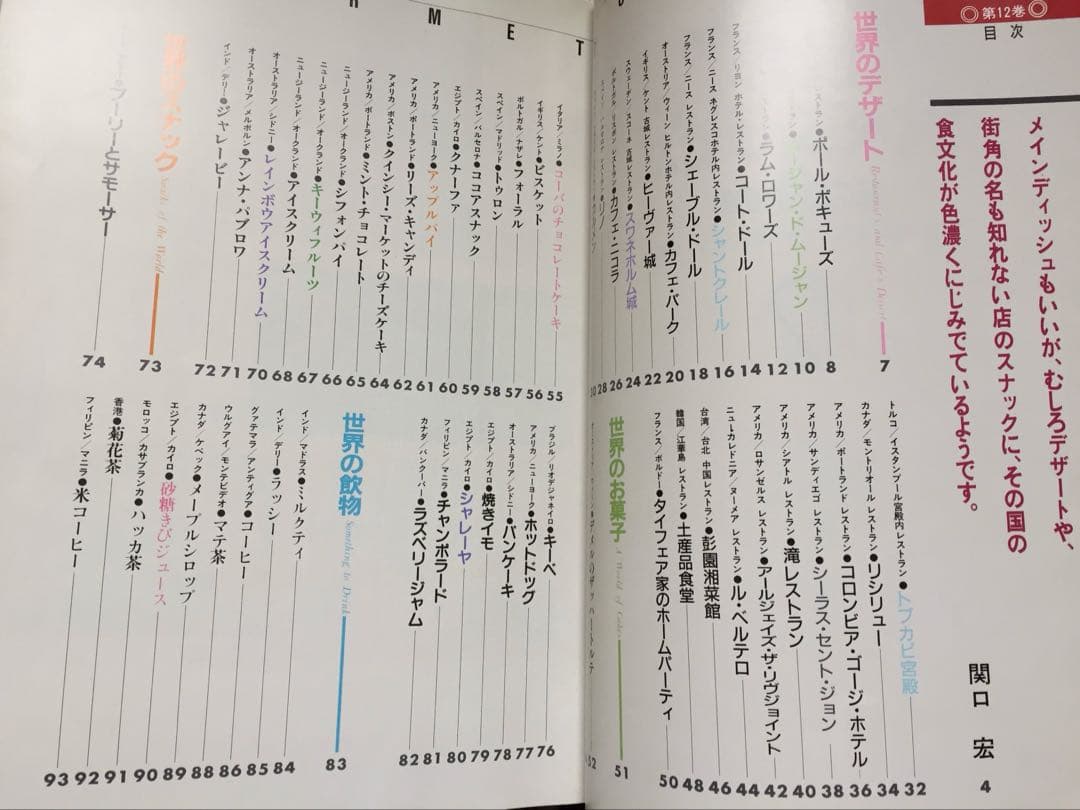 RMET
D
◎第12巻◎
目次
メインディッシュもいいが、むしろデザートや、
街角の名も知れない店のスナックに、その国の
食文化が色濃くにじみでているようです。
関口 宏 4
世界のデザート 7
ポール・ボキューズ 8
ムージャン・ド・ムージャン 10
ラム・ロワーズ 12
フランス/リヨン ホテル・レストラン●コート・ドール 14
フランス/ニース ネグレスコホテル内レストラン●シャントクレール 16
フランス/ニース レストラン●シェーブル・ドール 18
オーストリア/ウィーン ヒルトンホテル内レストラン●カフェ・パーク 20
イギリス/ケント 古城レストラン●ヒーヴァー城 22
スウェーデン/スコーネ 古城レストラン●スワネホルム城 24
カフェ・ニコラ 26
28
30
トルコ/イスタンブール 宮殿内レストラン●トプカピ宮殿 32
カナダ/モントリオール レストラン●リシリュー 34
アメリカ/ポートランド レストラン●コロンビア・ゴージ・ホテル 36
アメリカ/サンディエゴ レストラン●シーラス・セント・ジョン 38
アメリカ/シアトル レストラン●滝レストラン 40
アメリカ/ロサンゼルス レストラン●アールジェイズ・ザ・リヴジョイント 42
ニューカレドニア/ヌーメア レストラン●ル・ベルテロ 44
台湾/台北 中国レストラン●彭園湘菜館 46
韓国/江華島 レストラン●土産品食堂 48
フランス/ボルドー●タイフェア家のホームパーティ 50
世界のお菓子 51
52
イタリア/ミラノ●コーバのチョコレートケーキ 55
イギリス/ケント●ビスケット 56
ポルトガル/ナザレ●フォーラル 57
スペイン/マドリッド●トゥロン 58
スペイン/バルセロナ●ココアスナック 59
エジプト/カイロ●クナーファ 60
アメリカ/ニューヨーク●アップルパイ 61
アメリカ/ポートランド●リーズ・キャンディ 62
アメリカ/ボストン●クインシー・マーケットのチーズケーキ 64
アメリカ/ポートランド●ミント・チョコレート 65
ニュージーランド/オークランド●シフォンパイ 66
ニュージーランド/オークランド●キーウィフルーツ 67
ニュージーランド/オークランド●アイスクリーム 68
オーストラリア/シドニー●レインボウアイスクリーム 70
オーストラリア/メルボルン●アンナ・パブロワ 71
インド/デリー●ジャレービー 72
スナック Snacks of the World 73
プーリーとサモーサー 74
ブラジル/リオデジャネイロ●キーベ 76
アメリカ/ニューヨーク●ホットドッグ 77
オーストラリア/シドニー●パンケーキ 78
エジプト/カイロ●焼きイモ 79
エジプト/カイロ●シャレーヤ 80
フィリピン/マニラ●チャンポラード 81
カナダ/バンクーバー●ラズベリージャム 82
世界の飲物 Something to Drink 83
インド/マドラス●ミルクティ 84
インド/デリー●ラッシー 85
グァテマラ/アンティグア●コーヒー 86
ウルグアイ/モンテビデオ●マテ茶 88
カナダ/ケベック●メープルシロップ 89
エジプト/カイロ●砂糖きびジュース 90
モロッコ/カサブランカ●ハッカ茶 91
香港●菊花茶 92
フィリピン/マニラ●米コーヒー 93